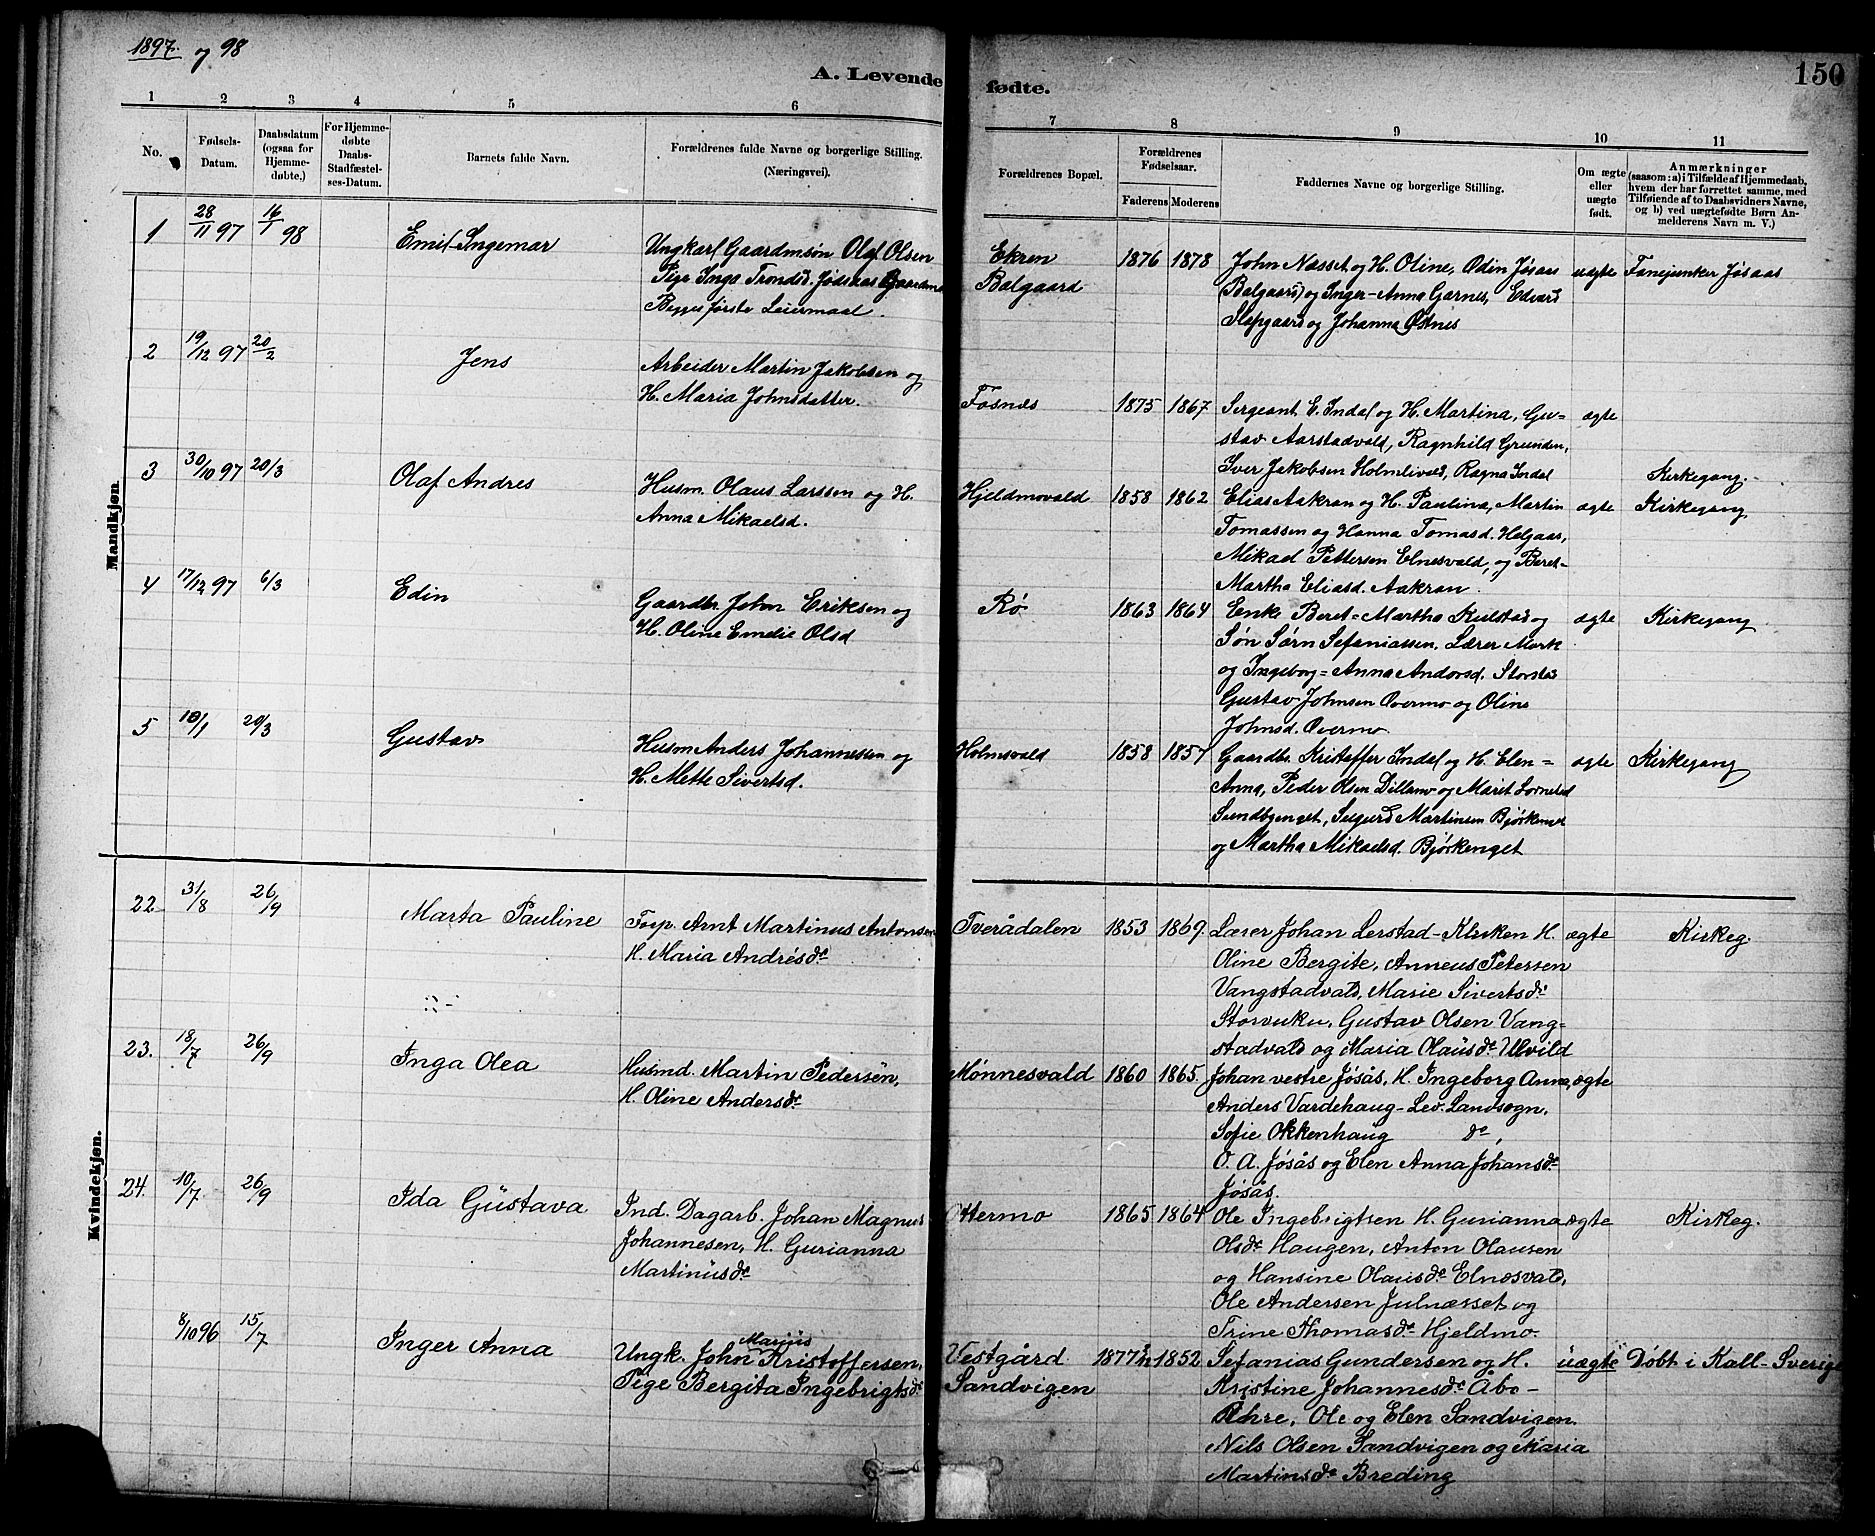 1897. og 98
A. Levende fødte. 150
1 2 3 4 5 6 7 8 9 10 11
No.
Fødsels-
Datum.
Daabsdatum
(ogsaa for
Hjemme-
døbte.)
For Hjemme-
døbte
Daabs-
Stadfæstel-
ses-Datum.
Barnets fulde Navn.
Forældrenes fulde Navne og borgerlige Stilling.
(Næringsvei).
Forældrenes Bopæl.
Forældrenes
Fødselsaar.
Faderens Moderens
Faddernes Navne og borgerlige Stilling.
Om ægte
eller
uægte
født.
Anmærkninger
(saasom: a) i Tilfælde af Hjemmedaab,
hvem der har forrettet samme, med
Tilføiende af to Daabsvidners Navne,
og b) ved uægtefødte Børn An-
melderens Navn m. V.)
Mandkjøn
1 28/11 97 16/1 98 Emil Ingemar
Ungkarl Gaardmsøn Olaf Olsen
Pige Inga Trondsd. Jøsaas Gaardm
Begges første Leiermaal.
Ekren
Balgaard
1876 1878
John Næsset og H. Oline, Odin Jøsaas
(Balgaard) og Inger-Anna Garnes, Edvard
Slapgaard og Johanna Østnes
uægte Fanejunker Jøsaas
2 19/12 97 20/2 Jens
Arbeider Martin Jakobsen og
H. Maria Johnsdatter.
Fosnæs 1875 1867
Sergeant E. Indal og H. Martina, Gu=
stav Aarstadvald, Ragnhild Grunden,
Iver Jakobsen Holmlivald, Ragna Indal
ægte Kirkegang.
3 30/10 97 20/3 Olaf Andres
Husm. Olaus Larssen og H.
Anna Mikaelsd.
Hjeldmovald 1858 1862
Elias Aakran og H. Paulina, Martin
Tomassen og Hanna Tomasd. Helgaas,
Mikael Pettersen Elnesvald, og Beret-
Martha Eliasd. Aakran.
ægte Kirkegang
4 17/12 97 6/3 Edin
Gaardbr. John Eriksen og
H. Oline Emelie Olsd
Rø 1863 1864
Enke Beret=Martha Kulstad og
Søn Sørn Sefaniassen, Lærer Mork
og Ingeborg=Anna Andorsd. Storstad
Gustav Johnsen Overmo og Oline
Johnsd. Overmo
ægte Kirkegang
5 18/1 20/3 Gustav
Husm Anders Johannessen og
H. Mette Sivertsd.
Holmsvald 1858 1857
Gaardbr. Kristoffer Indal og H. Elen=
Anna, Peder Olsen Dillamo og Marit
Sundbyenget, Sigurd Martinsen Bjørkenget
og Martha Mikaelsd. Bjørkenget
ægte Kirkegang
Kvindekjøn.
22 31/8 26/9 Marta Pauline
Forp. Arnt Martinus Antonsen
H. Maria Andrésdr.
Tverådalen 1853 1869.
Lærer Johan Lerstad-Kluken H.
Oline Bergite, Anneus Petersen
Vangstadvald, Marie Sivertsdr.
Storvuku, Gustav Olsen Vang=
stadvald og Maria Olausdr. Ulvild
ægte Kirkeg.
23. 18/7 26/9 Inga Olea
Husmd. Martin Pedersen,
H. Oline Andersdr.
Mønnesvald 1860 1865.
Johan vestre Jøsås, H. Ingeborg Anna,
Anders Vardehaug-Lev. Landsogn.
Sofie Okkenhaug do,
O. A. Jøsås og Elen Anna Johansdr.
Jøsås.
ægte
24. 10/7. 26/9 Ida Gustava
Ind. Dagarb. Johan Magnus
Johannesen, H. Gurianna
Martinusdr.
Ottermo 1865 1864
Ole Ingebrigtsen H. Gurianna
Olsdr. Haugen, Anton Olausen
og Hansine Olausdr. Elnæsvald,
Ole Andersen Julnæsset og
Trine Thomasdr. Hjeldmo.
ægte Kirkeg.
8/10 96 15/7 Inger Anna
Marius
Ungk. John Kristoffersen,
Pige Bergita Ingebrigtsdr.
Vestgård
Sandvigen
1877 1852
Sefanias Gundersen og H.
Kristine Johannesdr. Åbo-
Ole og Elen Sandvigen.
Nils Olsen Sandvigen og Maria
Martinsdr. Breding
uægte Døbt i Kall-Sverige